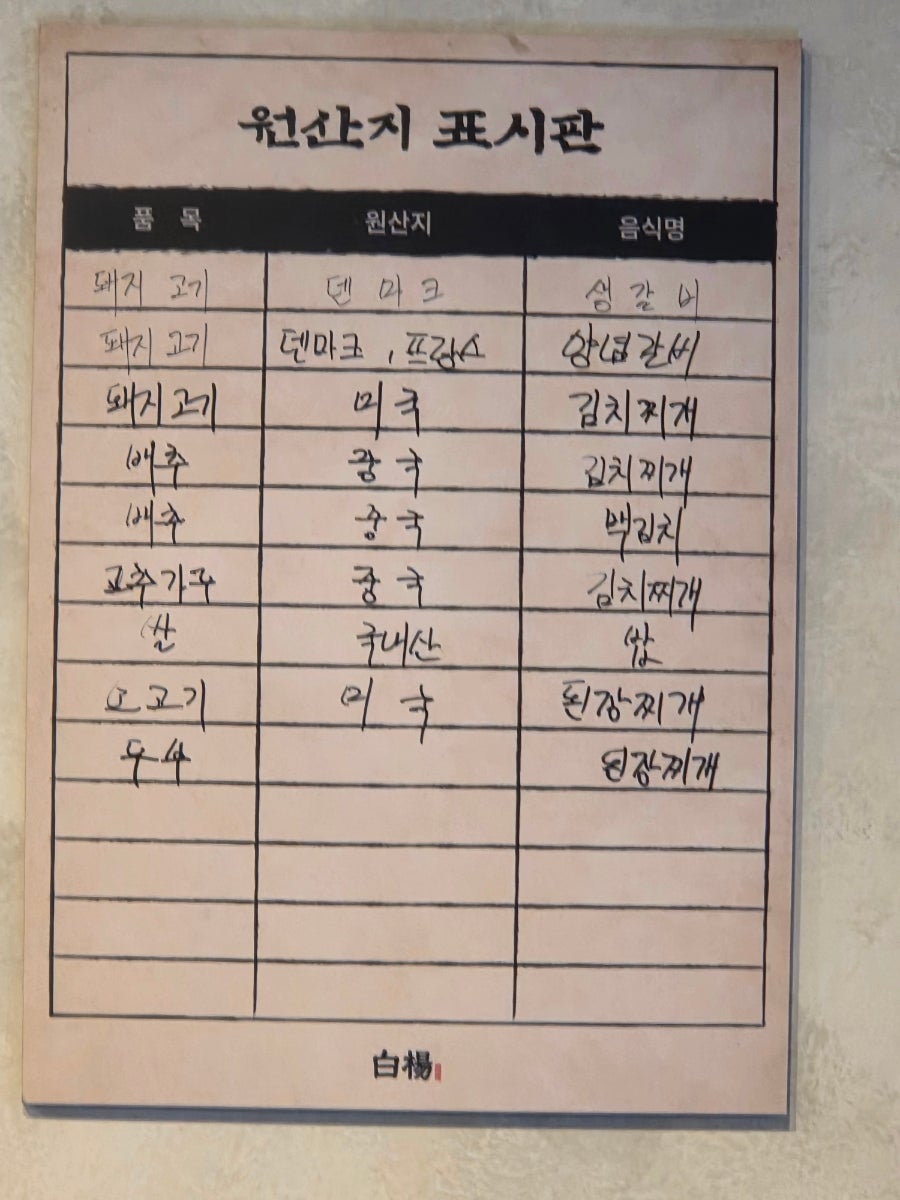 원산지 표시판
품 목 원산지 음식명
돼지 고기 덴 마 크 생 갈 비
돼지 고기 덴마크 , 프랑스 양념갈비
돼지고기 미 국 김치찌개
배추 중 국 김치찌개
배추 중 국 백김치
고추가루 중 국 김치찌개
쌀 국내산 밥
소고기 미 국 된장찌개
두부 된장찌개
白楊